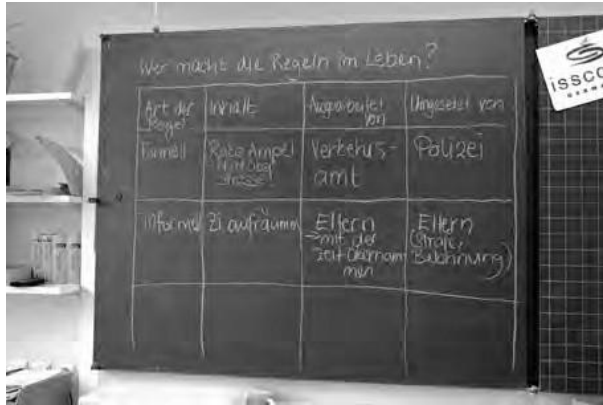 Wer macht die Regeln im Leben?
Art der Regel
Inhalt
Ausgearbeitet von
Umgesetzt von
Formell
Rote Ampel
Verkehrs-
amt
Polizei
Informell
Zi aufräumen
Eltern
→ mit der
Zeit
Eltern
(Strafe,
Belohnung)
issco